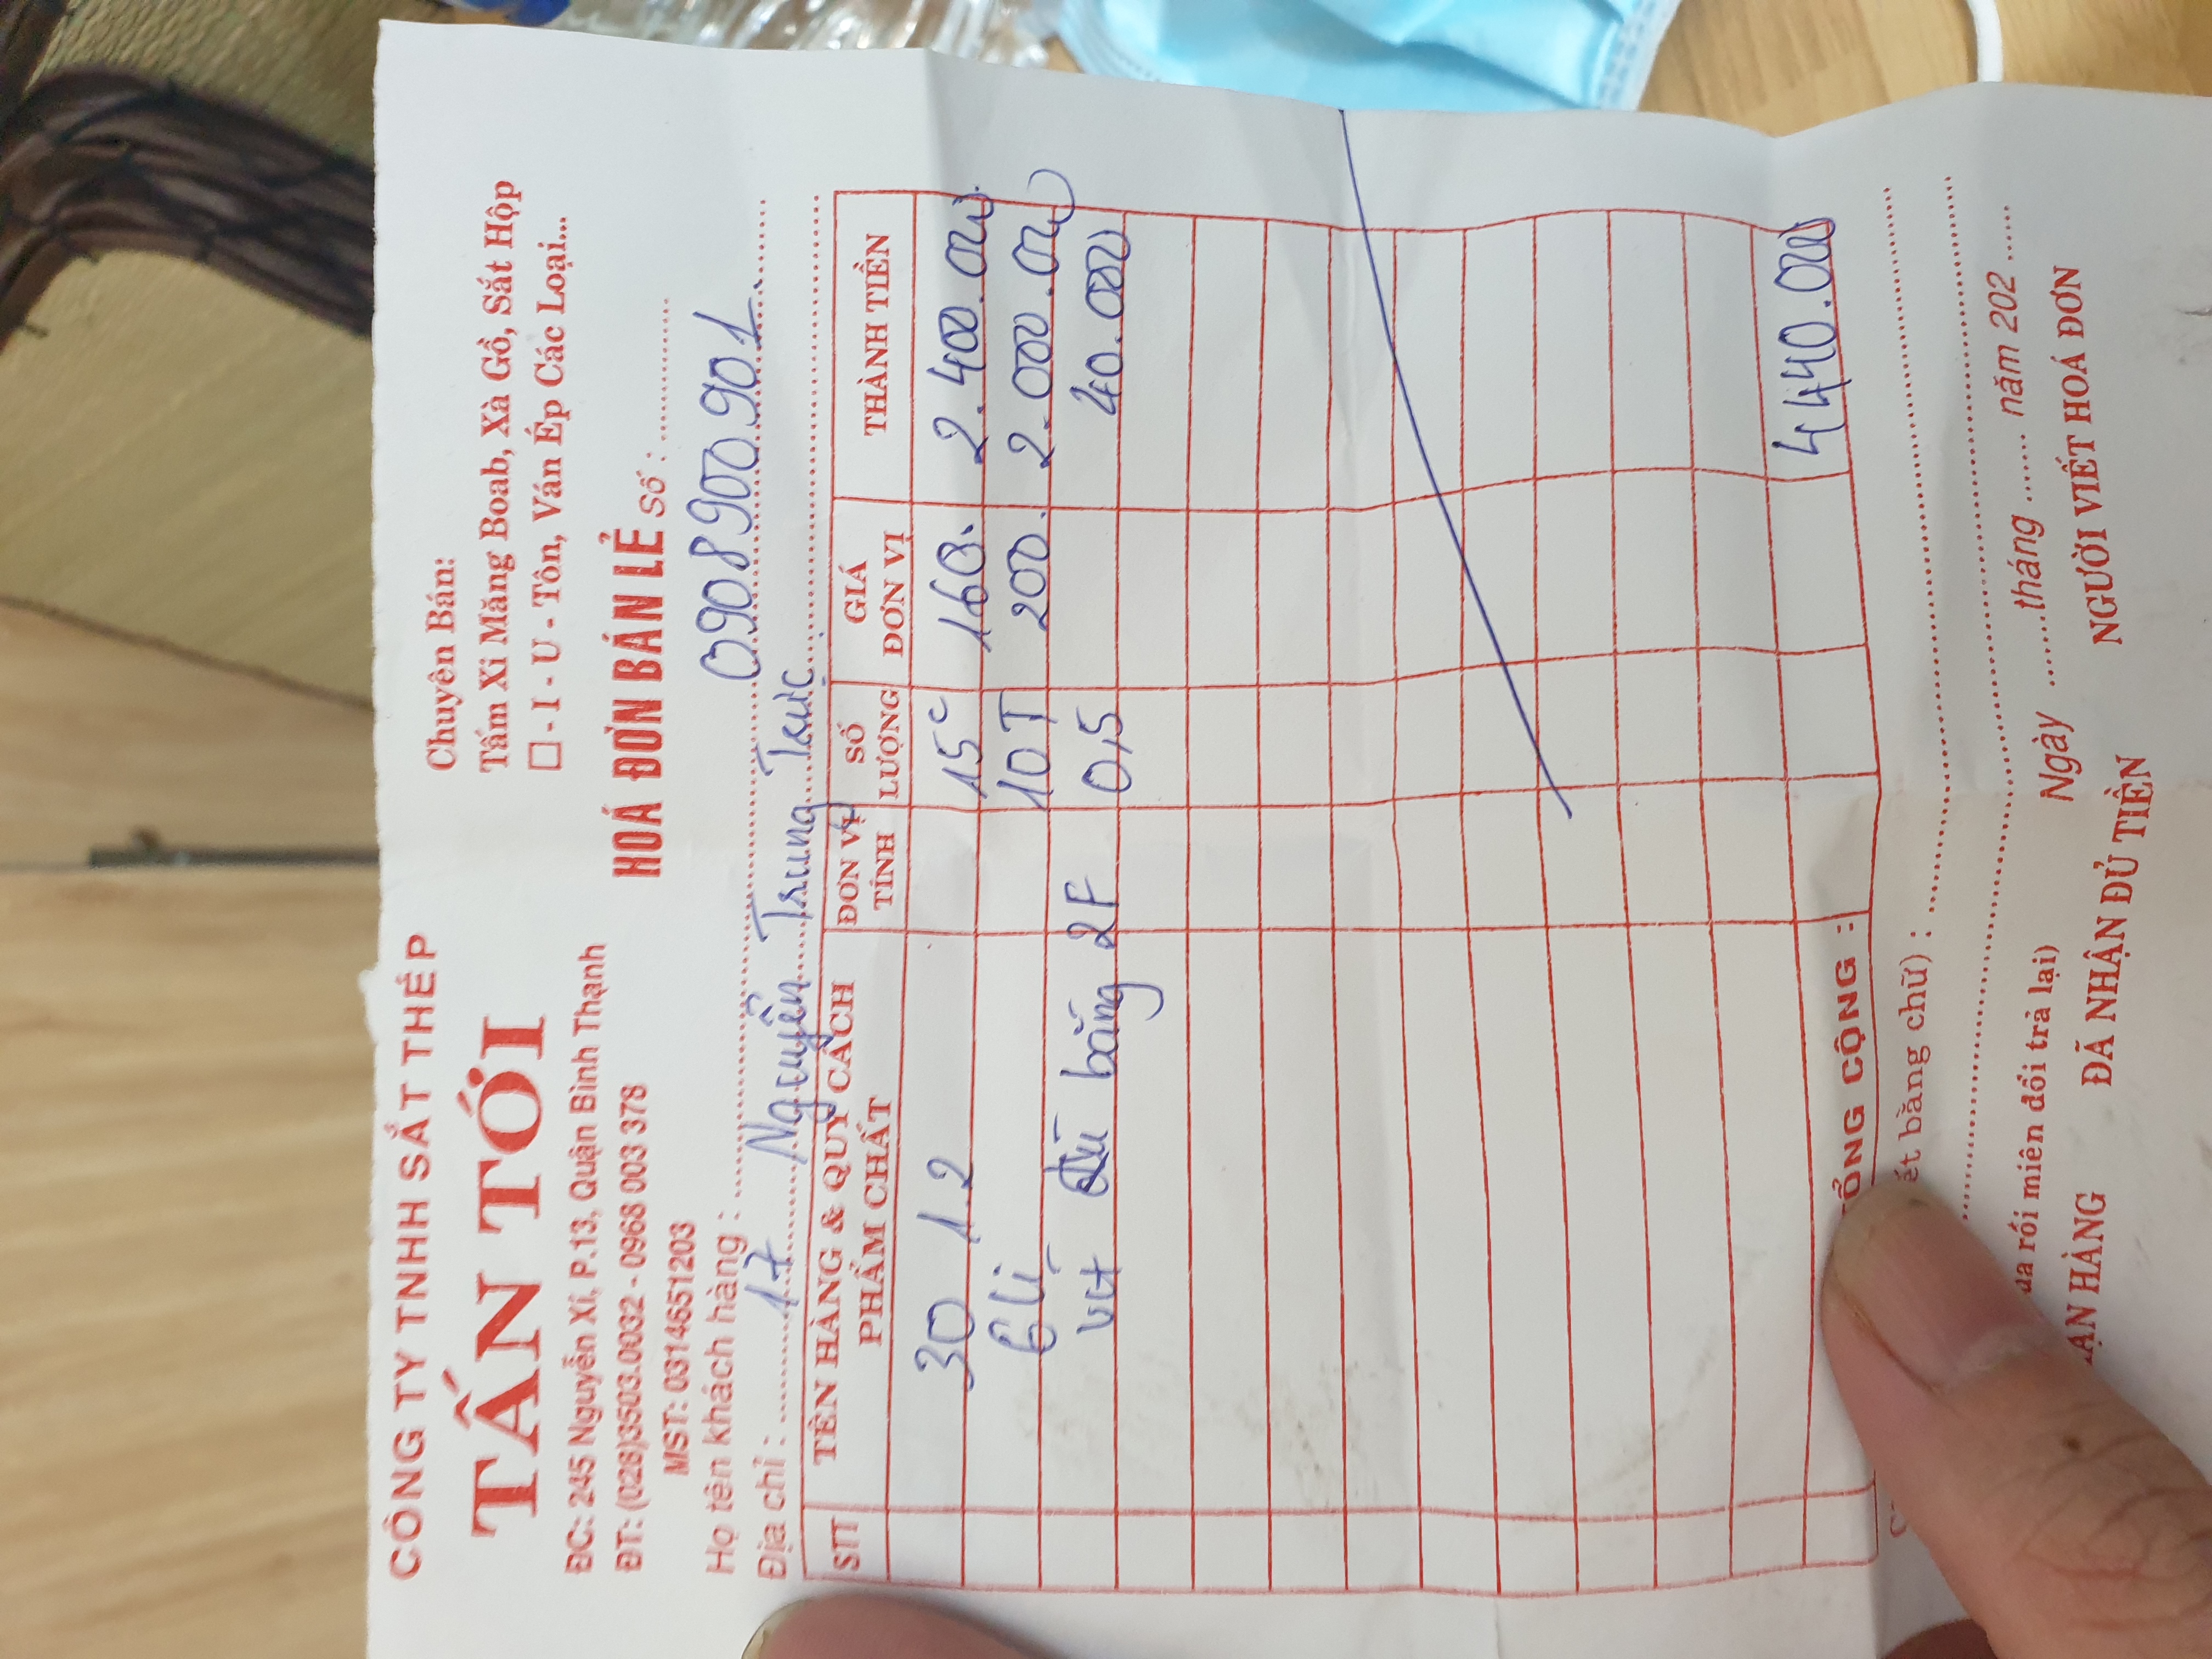 CÔNG TY TNHH SẮT THÉP
TẤN TỚI
ĐC: 245 Nguyễn Xí, P.13, Quận Bình Thạnh
ĐT: (028)3503.0032 - 0968 003 378
MST: 0314651203
Chuyên Bán:
Tấm Xi Măng Boab, Xà Gồ, Sắt Hộp
□ - I - U - Tôn, Ván Ép Các Loại...
HOÁ ĐƠN BÁN LẺ Số :
Họ tên khách hàng : 0908900.901
Địa chỉ : 17 Nguyễn Trung Trực
STT TÊN HÀNG & QUY CÁCH PHẨM CHẤT ĐƠN VỊ TÍNH SỐ LƯỢNG GIÁ ĐƠN VỊ THÀNH TIỀN
30 1.2 15c 160. 2.400.000
6 li 10T 200. 2.000.000
vít dù bắng 2F 0,5 40.000
ỔNG CỘNG : 4440.000
ết bằng chữ) :
ua rồi miễn đổi trả lại)
Ngày tháng năm 202
ẬN HÀNG ĐÃ NHẬN ĐỦ TIỀN NGƯỜI VIẾT HOÁ ĐƠN